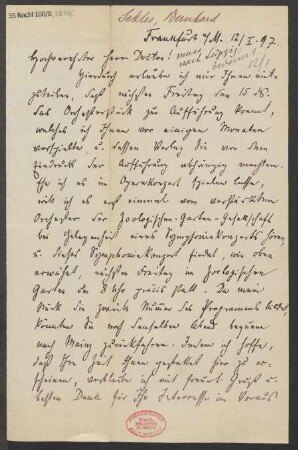 55 Nachl 100/B,
Sekles, Bernhard
Frankfurt a/M. 12/I. 97.
Hochverehrter Herr Doctor!
muss nach Leipzig
12/1
Hierdurch erlaube ich mir Ihnen mit-
zuteilen, daß nächsten Freitag den 15 ds.
das Orchesterstück zur Aufführung kommt,
welches ich Ihnen vor einigen Monaten
vorspielte u. dessen Verlag Sie von dem
Eindruck der Aufführung abhängig machten.
Ehe ich es im Opernkonzert spielen lasse,
will ich es erst einmal vom verstärkten
Orchester der Zoologischen-Garten-Gesellschaft
bei Gelegenheit eines Symphonieconzerts hören
u. dieses Symphonieconzert findet, wie oben
erwähnt, nächsten Freitag im Zoologischen
Garten des 8 Uhr präcis statt. Da mein
Stück die zweite Numer des Programms bildet,
könnten Sie noch denselben Abend bequem
nach Mainz zurückfahren. Indem ich hoffe,
daß Ihre Zeit Ihnen gestattet hier zu er-
scheinen, verbleibe ich mit freundl. Gruß u.
besten Dank für Ihr Interesse im Voraus